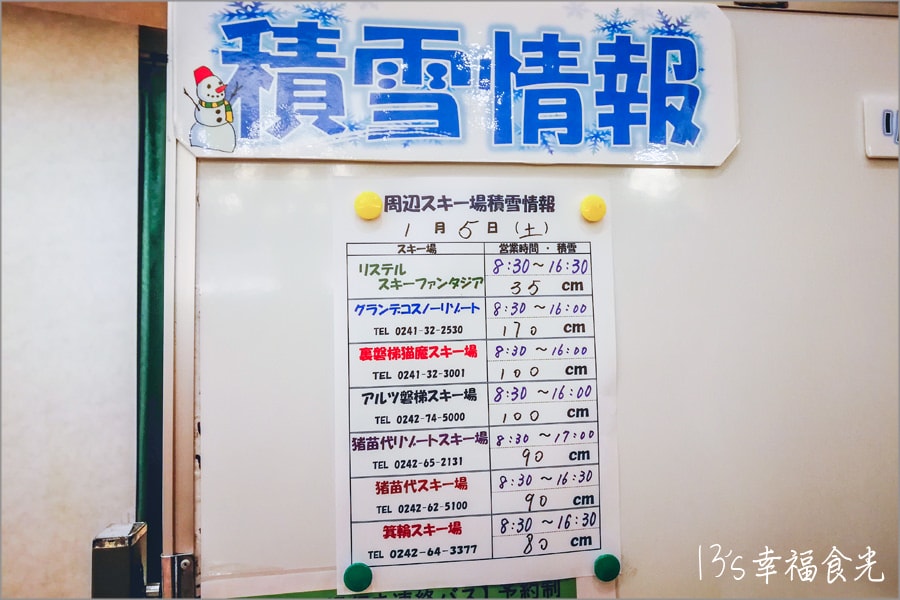 積雪情報
周辺スキー場積雪情報
1月5日(土)
スキー場 営業時間・積雪
リステル 8:30~16:30
スキーファンタジア 35 cm
グランデコスノーリゾート 8:30~16:00
TEL 0241-32-2530 170 cm
裏磐梯猫魔スキー場 8:30~16:00
TEL 0241-32-3001 100 cm
アルツ磐梯スキー場 8:30~16:00
TEL 0242-74-5000 100 cm
猪苗代リゾートスキー場 8:30~17:00
TEL 0242-65-2131 90 cm
猪苗代スキー場 8:30~16:30
TEL 0242-62-5100 90 cm
箕輪スキー場 8:30~16:30
TEL 0242-64-3377 80 cm
連絡バス1予約制
13's幸福食光